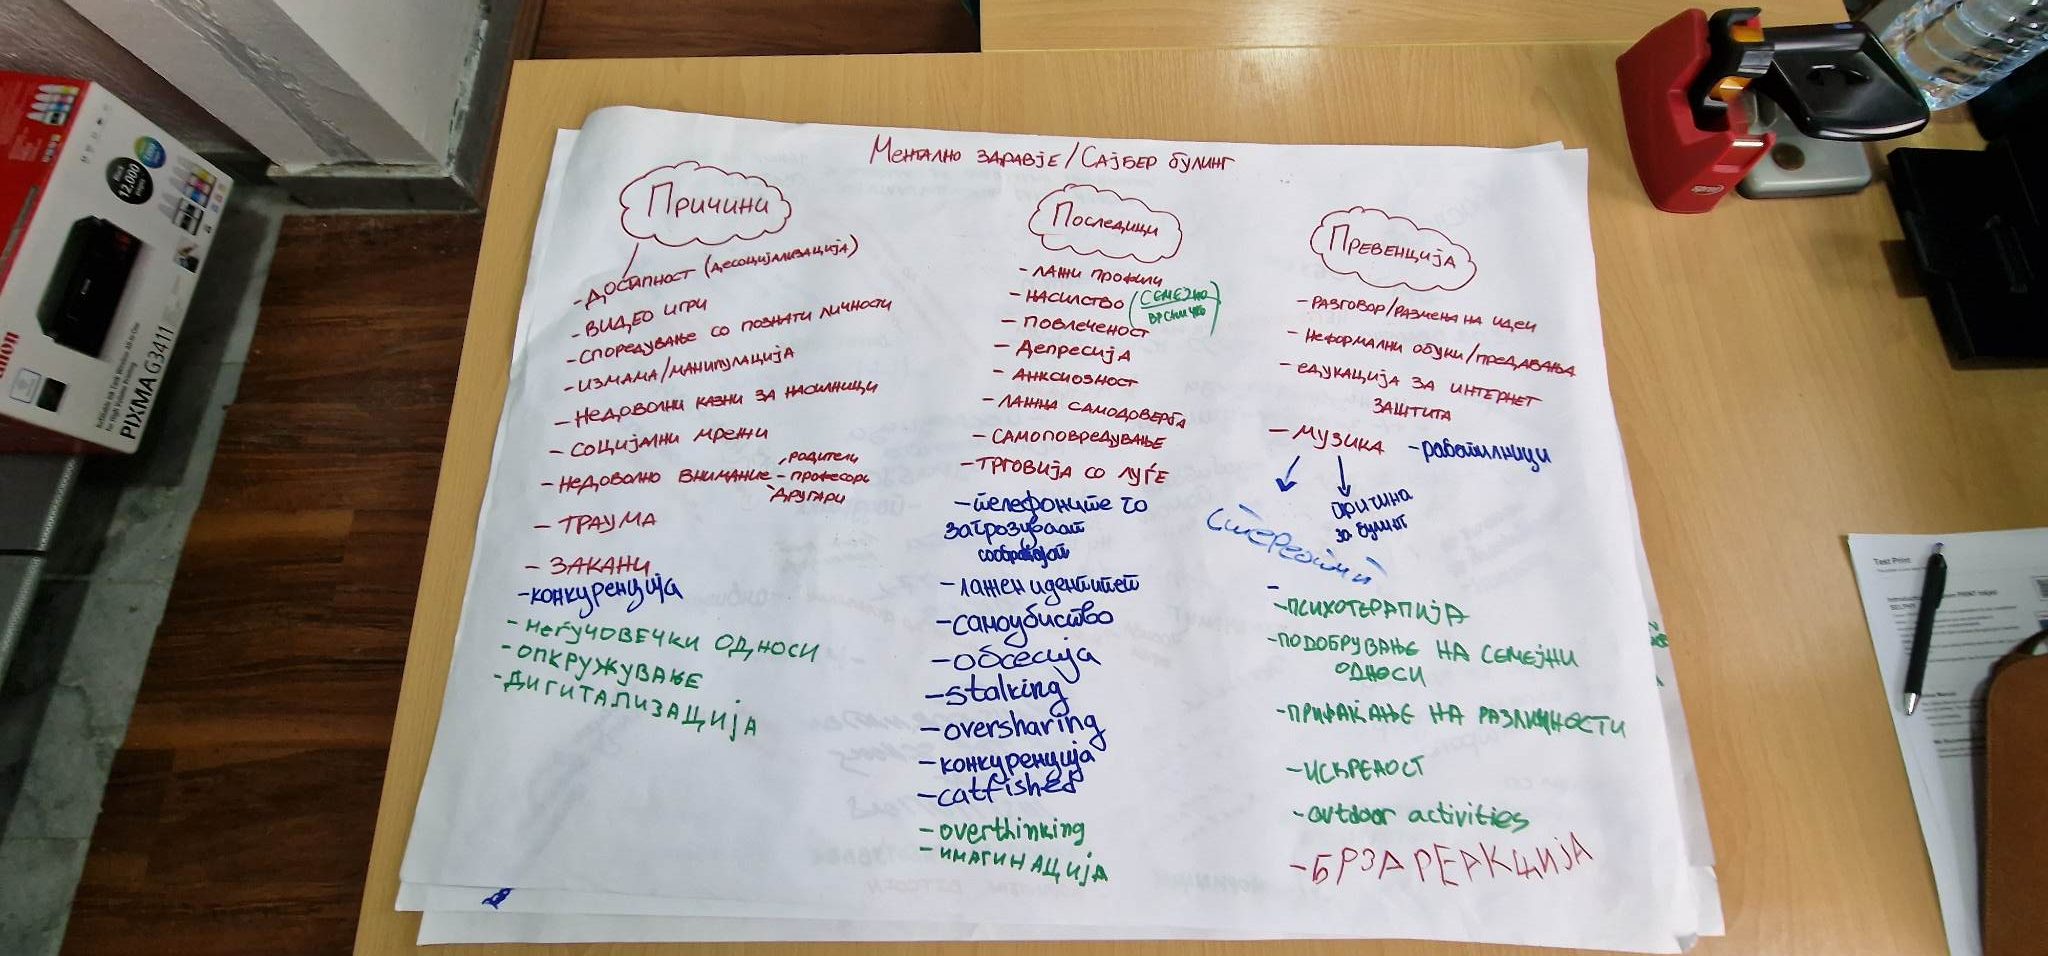 Ментално здравје/Сајбер булинг
Причини
- Достапност (десоцијализација)
- видео игри
- споредување со познати личности
- измама/манипулација
- недоволни казни за насилници
- социјални мрежи
- недоволно внимание - родители
- професори
- другари
- траума
- закани
- конкуренција
- меѓучовечки односи
- опкружување
- дигитализација
Последици
- лажни профили
- насилство (семејно
врсничко)
- повлеченост
- депресија
- анксиозност
- лажна самодоверба
- самоповредување
- трговија со луѓе
- телефоните го
загрозуваат
сообраќајот
- лажен идентитет
- самоубиство
- обсесија
- stalking
- oversharing
- конкуренција
- catfished
- overthinking
- имагинација
Превенција
- разговор/размена на идеи
- неформални обуки/предавања
- едукација за интернет
заштита
- музика - работилници
причина
за булинг
стереотипи
-
- психотерапија
- подобрување на семејни
односи
- прифаќање на различности
- искреност
- outdoor activities
- брза реакција
Canon
PIXMA G3411
Black
12,000
Test Print